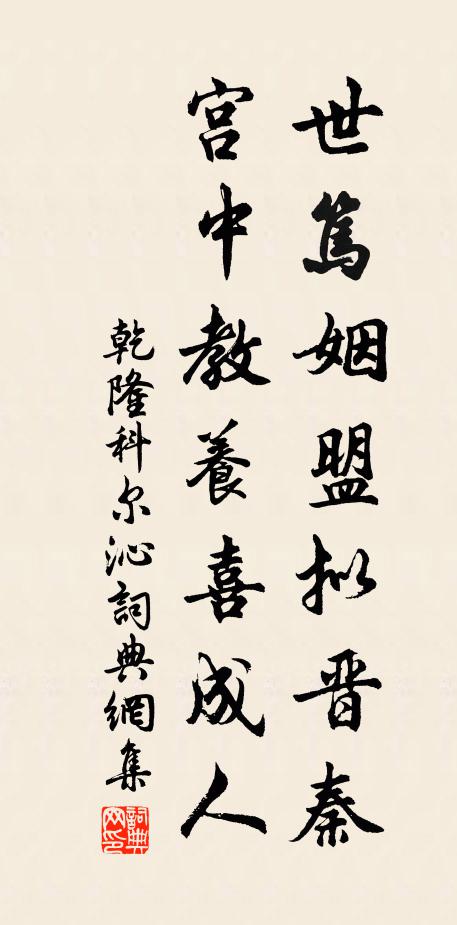 世篤姻盟拟晋秦
宫中教養喜成人
乾隆科尔沁詞典網集
詞典网印